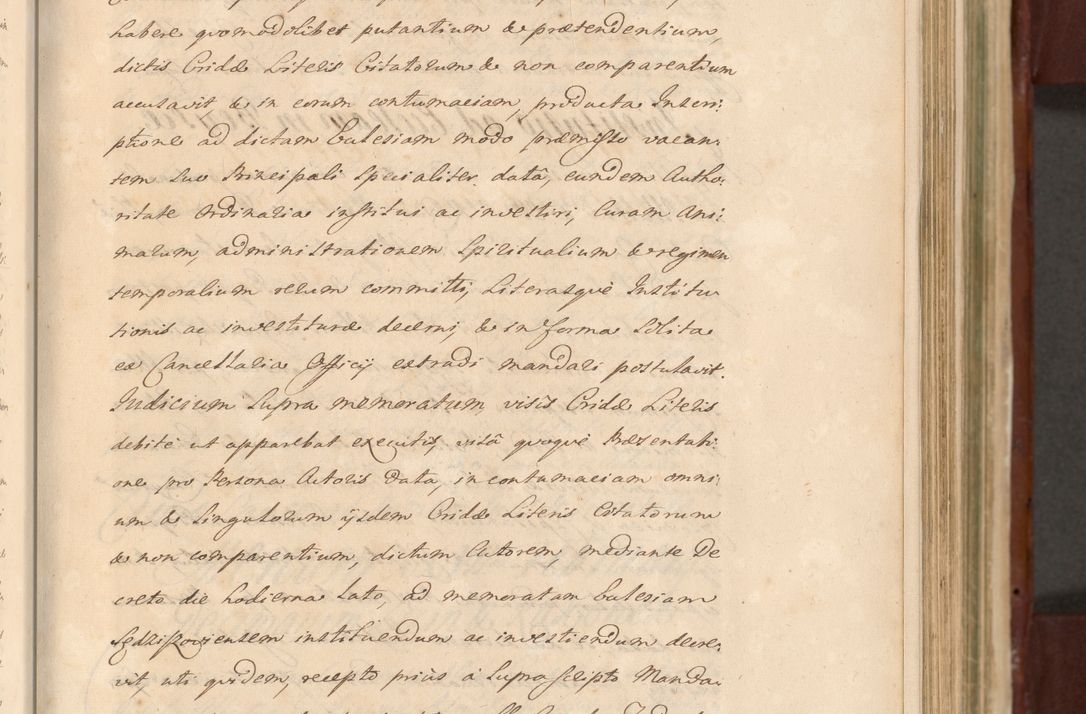 habere quomodolibet putantium & prætendentium,
dictis Cridæ Literis Citatorum & non comparentium
accusavit & in eorum contumaciam, producta Inscri:
ptione ad dictam Eulesiam modo præmisso vacan:
tem suo Principali specialiter data, eundem Autho:
ritate Ordinaria institui ac investiri, Curam Ani:
marum, administrationem Spiritualium & regimen
temporalium rerum committi, Literasquè Institu
tionis ac investituræ decerni, & in forma solita
ex Cancellaria Officij extradi mandari postulavit.
Iudicium supra memoratum visis Cridæ Literis
debitè ut apparebat executis, visâ quoquè Præzentati
one pro Persona Actoris data, in contumaciam omni:
um & singulorum ijsdem Cridæ Literis Citatorum
& non comparentium, dictum Actorem, mediante De
creto die hodierna lato, ad memoratam Eulesiam
instituendum ac investiendum decre:
vit, uti quidem, recepto prius à supra scripto Manda: